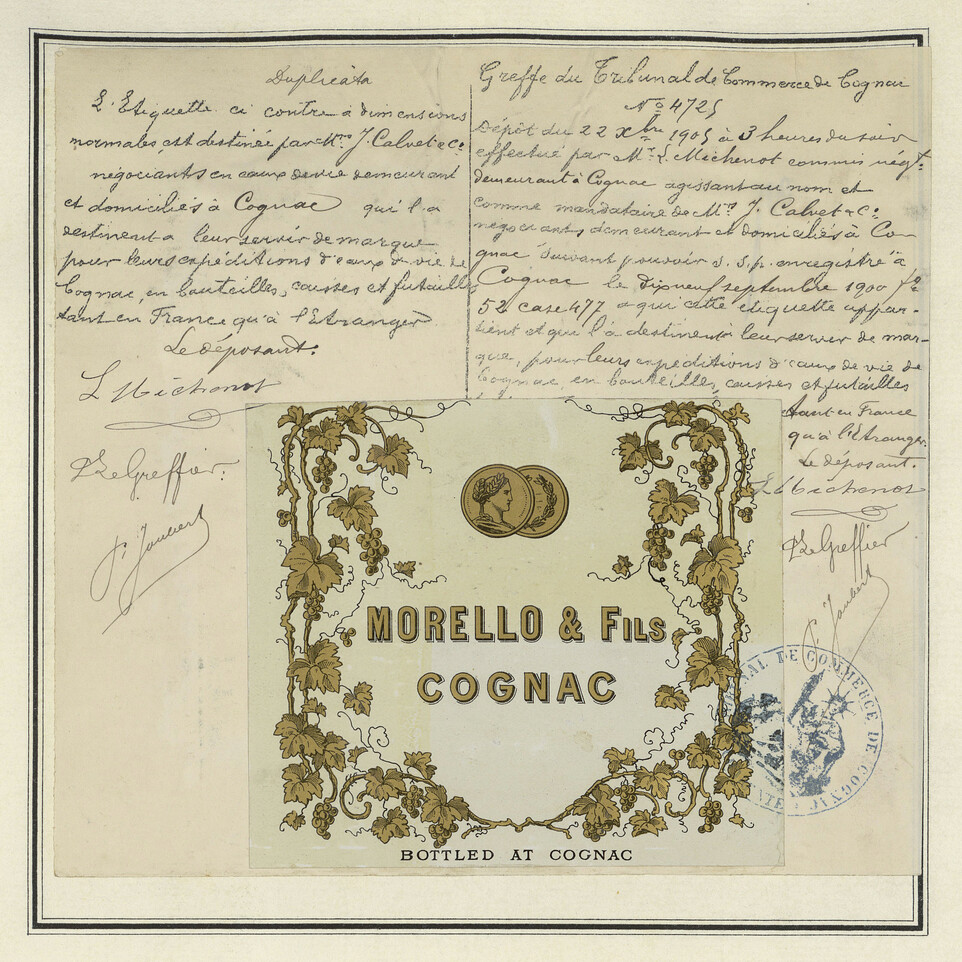 Duplicata
L'Etiquette ci contre à dimensions
normales est destinée par Mrs J. Calvet & Cie
négociants en eaux de vie demeurant
et domiciliés à Cognac qui l'a
destinent a leur servir de marque
pour leurs expéditions d'eaux de vie de
Cognac, en bouteilles, caisses et futailles
tant en France qu'à l'Etranger
Le déposant.
L Michenot
Le Greffier.
J. Jaubert
Greffe du Tribunal de Commerce de Cognac
No 4725
Dépôt du 22 Xbre 1905 à 3 heures du soir
effectué par Mr L. Michenot commis négt
demeurant à Cognac agissant au nom et
comme mandataire de Mrs J. Calvet & Cie
négociants demeurant et domiciliés à Co-
gnac suivant pouvoir s. s. p. enregistré à
Cognac le dix neuf septembre 1900 fo
52 case 477 qui cette etiquette appar-
tient et qui l'a destinent à leur servir de mar-
que, pour leurs expéditions d'eaux de vie de
Cognac, en bouteilles, caisses et futailles
tant en France
qu'à l'Etranger.
Le déposant.
L Michenot
Le Greffier
J. Jaubert
MORELLO & FILS
COGNAC
BOTTLED AT COGNAC
TRIBUNAL DE COMMERCE DE COGNAC